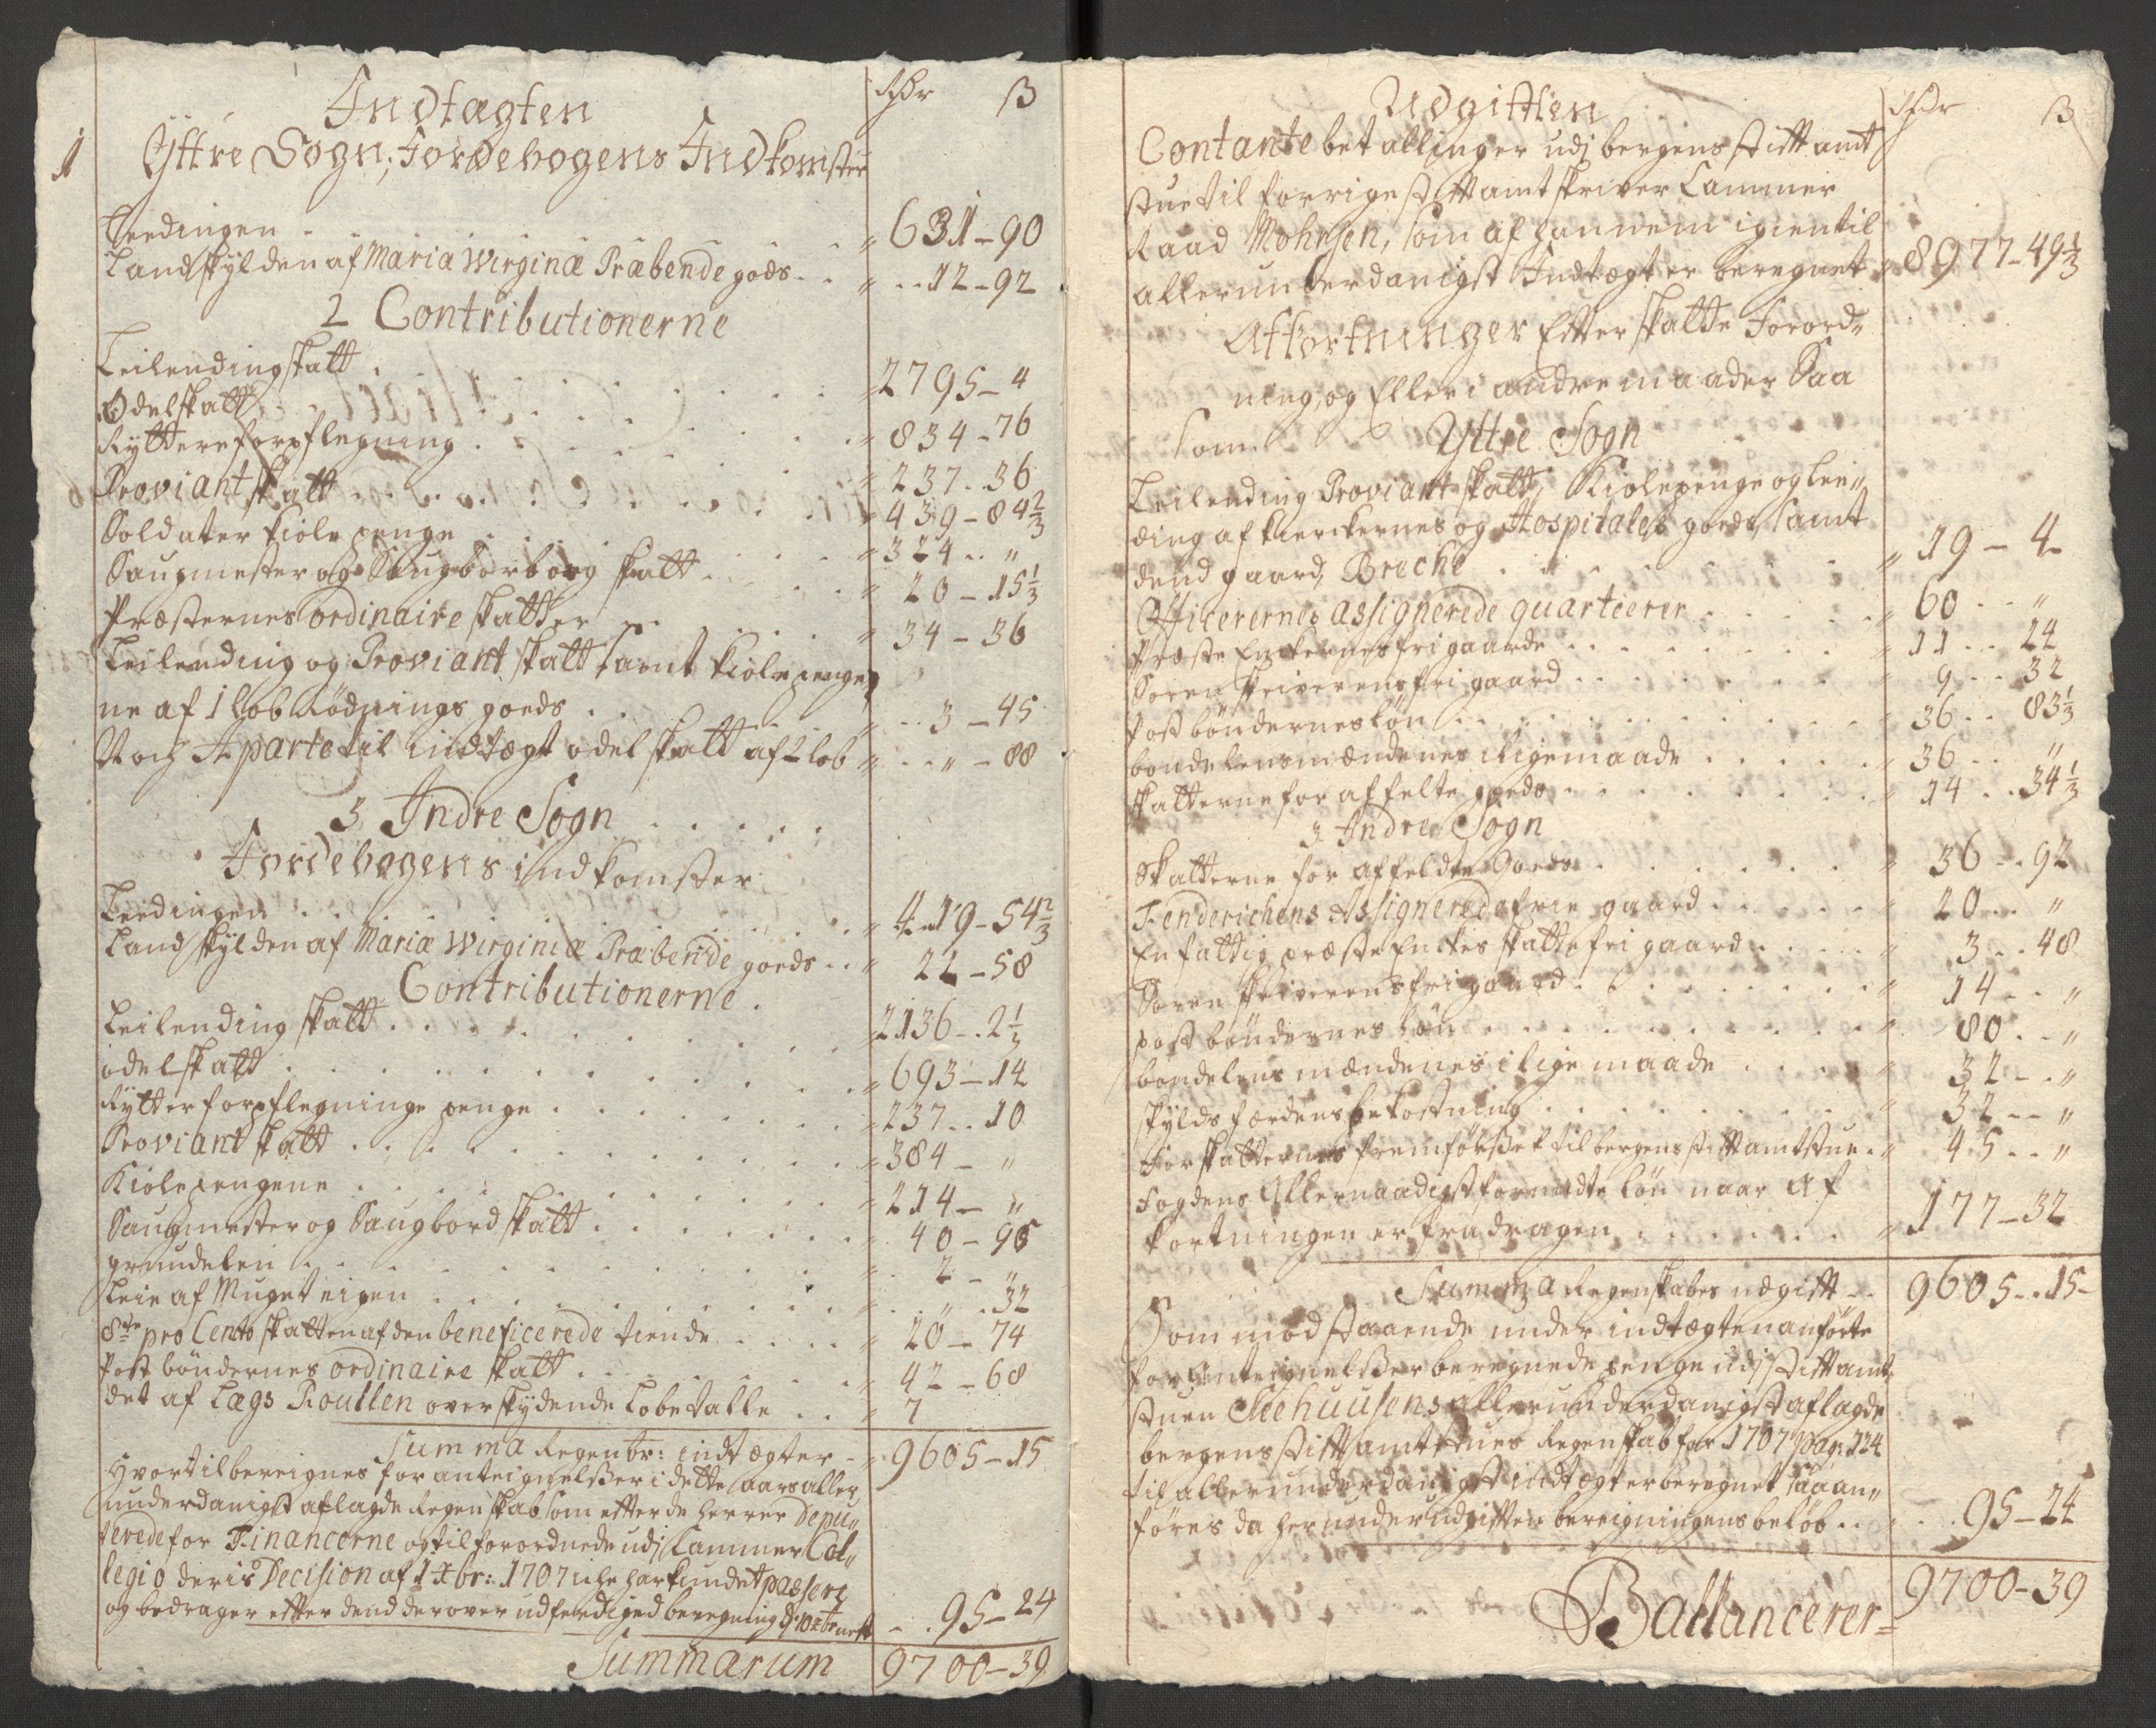 Indtægten
Rdr ß
1 Yttre Sogn, Jordebogens Indkomster
Leedingen . . . „ 631-90
Landskylden af Maria Wirginæ Præbende gods . . „ 12-92
2 Contributionerne
Leilendingskatt . . . 2795-4
Odelskatt . . . „ 834-76
Rytterforpflegning . . . „ 237-36
Proviantskatt . . . „ 439-84 2/3
Soldater kiole penge . . . „ 324 - „
Saugmester og Saugborborg skatt . . . „ 20-15 1/3
Præsternes ordinaire skatter . . . „ 34-36
Leilending og Proviant skatt samt kiolepenge„
ne af 1 lob Rødnings goeds . . . „ 3-45
Noch Aparte til indtægt odelskatt af 2 lob „ „ - 88
3 Indre Sogn
Jordebogens indkomster
Leedingen . . . „ 419-54 2/3
Landskylden af Mariæ Wirginiæ Præbende goeds . . „ 22-58
Contributionerne
Leilending skatt . . . 2136-2 1/3
odelskatt . . . „ 693-14
Rytterforpflegninge penge . . . „ 237-10
Proviant skatt . . . „ 384 - „
Kiolepengene . . . „ 214 - „
Saugmester og Saugbord skatt . . . „ 40-95
grundelen . . . „ 2 - „
Leie af Muget eigen . . . „ „ 32
8te pro Cento skatten af den beneficerede tiende . . . „ 20-74
Post bøndernes ordinaire skatt . . . „ 42-68
det af Lægs Roullen overskydende Lobetalle . . „ 7
Summa Regenbr: indtægter - „ 9605-15
Hvortil beregnes for anteignelsser i dette aars aller
underdanigst aflagde Regenskab som efter de herrer Depu„
terede for Financerne og tilforordnede udj Cammer Col„
legio deris Decision af 1 Xbr: 1707 iche har kundet passere
og bedrager efter dend derover udferdiged beregning
- 95-24
Summarum 9700-39
Udgifften
Rdr ß
Contante betallinger udj bergens stift amt
stue til forrige stiftamtskriver Cammer
Raad Mohrsen, som af hannem igien til
allerunderdanigst Indtægt er beregnet „ 8977-49 1/3
Afkortninger Efter skatte Forord„
ning, og Eller i andre maader Saa
som Yttre Sogn
Leilending Proviant skatt, Kiolepenge og Lee„
ding af kierckernes og Hospitalets goeds, samt
dend gaard, Breche . . . „ 19-4
Officerernes assignerede quarteerer . . . „ 60 - „
Præste Enckernes fri gaarde . . . „ 11 - 24
Soren skriverens fri gaard . . . „ 9 - 32
Post bøndernes løn . . . „ 36 - 83 1/3
bondelensmændenes iligemaade . . . „ 36 - „
skatterne for affelte goeds . . . „ 14 - 34 1/3
3 Indre Sogn
Skatterne for affeldte Goeds . . . „ 36 - 92
Fenderichens Assignerede frie gaard . . . „ 20 - „
En fattig præste Enckes skattefri gaard . . . „ 3 - 48
Soren skriverens fri gaard . . . „ 14 - „
post bøndernes løn . . . „ 80 - „
bondelens mændenes i lige maade . . . „ 32 - „
skyldsfærdens bekostning . . . „ 32 - „
For skatternes fremførssel til bergens stiftamtstue . „ 45 - „
Fogdens Allernaadigst forundte løn naar Af
kortningen er fradragen . . . „ 177-32
Summa Regenskabes udgift - 9605-15-
Som mod staaende under indtægten anførte
for Anteignelsser beregnede penge udj stiftamt
stuen Seehuusens allerunderdanigst aflagde
bergens stiftamtstues Regenskab for 1707 pag: 224
til allerunderdanigst indtægt er beregnet saa an„
føres da her under udgiften bereigningens beløb . . 95-24
Ballancerer= 9700-39